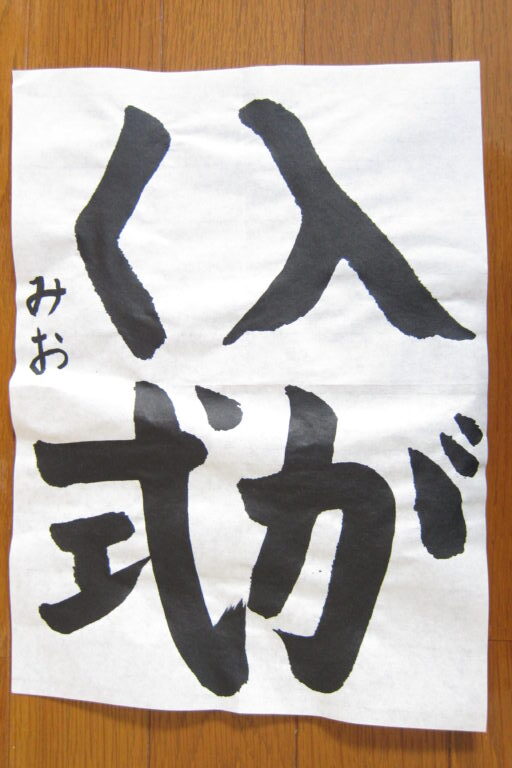 入が
く式
みお